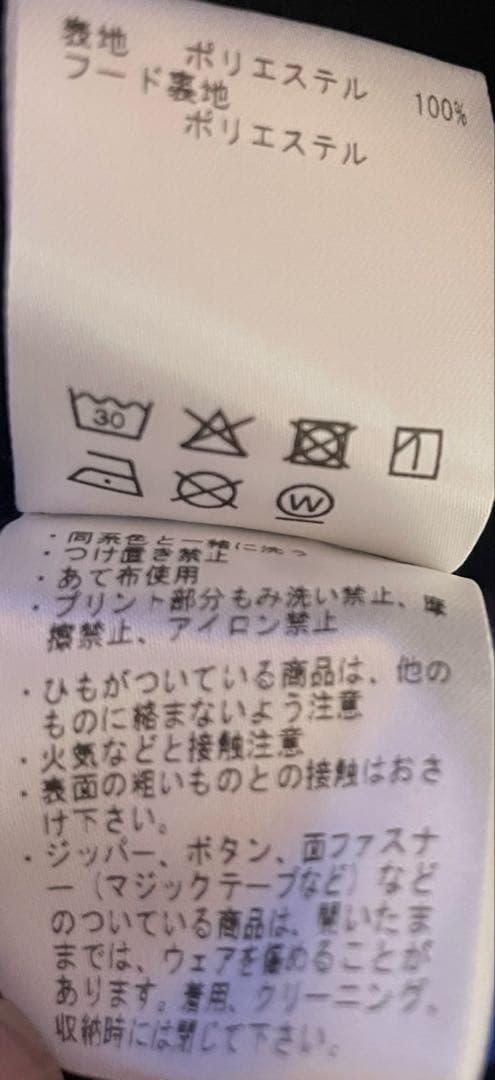 表地 ポリエステル 100%
フード裏地
ポリエステル
30
W
・同系色と一緒に洗う
・つけ置き禁止
・あて布使用
・プリント部分もみ洗い禁止、摩
擦禁止、アイロン禁止
・ひもがついている商品は、他の
ものに絡まないよう注意
・火気などと接触注意
・表面の粗いものとの接触はおさ
け下さい。
・ジッパー、ボタン、面ファスナ
ー（マジックテープなど）など
のついている商品は、開いたま
までは、ウェアを傷めることが
あります。着用、クリーニング、
収納時には閉じて下さい。